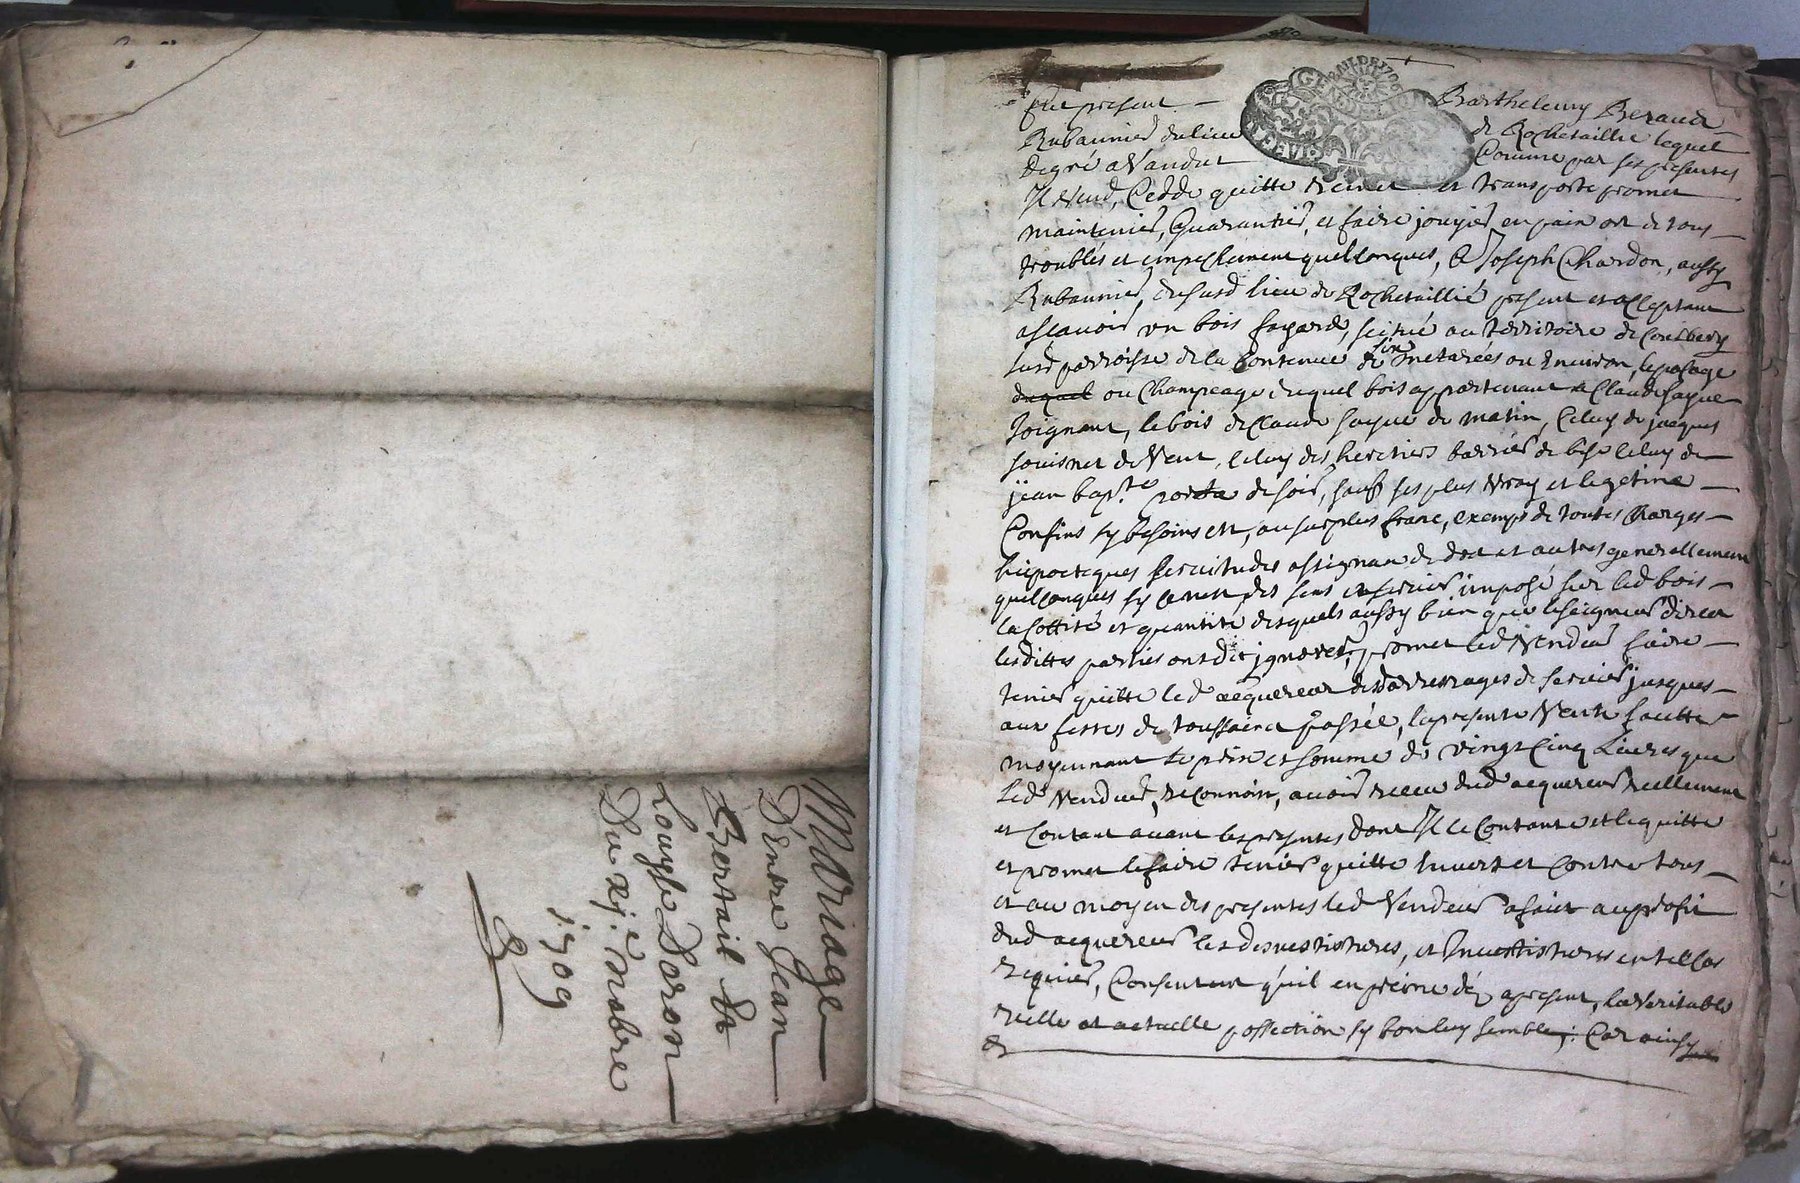 Mariage
D'Entre Jean
Bertail Et
Louyse Doron
Du xj.e 9nobre
1709
fut present Barthelemy Beraud
Rubannier du lieu de Rochetaillie lequel
de gré a Vandut Comme par ses presentes
Il Vend, Cedde quitte remet et transporte promet
maintenir, Guarantir, et faire jouyir en paix et de tous
troubles et empeschement quelconques, a Joseph Chardon, aussy
Rubannier, dususd lieu de Rochetaillié present et acceptant
ascavoir un bois fayard, scitué au territoire de
susd parroisse de la Contenue de six metarées ou Environ, le pacage
duquel ou Champeage duquel bois appartenant a Claude fayue
Joignant, le bois de Claude fayue de matin, Celuy de jacques
de Vent, Celuy des heritiers barrier de bise Celuy de
jean bap.te de soir, sauf ses plus vray et legetime
Confins sy besoins est, au surplus franc, exemps de toutes Charges
hipoteques servitudes assignau de dot et autres generallement
quelconques sy Ce nest, des sens et servis imposé sur led bois
la Cottité et quantité desquels aussy bien que le seigneur direct
lesdittes parties ont dit ignorer, promet led Vendeur faire
tenir quitte led acquereur des darrerrages de servis jusques
aux festes de toussainct passée, la presente Vente faitte
moyennant le prix et somme de vingt Cinq Livres que
Led Vendeur, reconnoit, avoir receu dud acquereur reellement
et Contant avant les presentes dont Il se Contante et le quitte
et promet le faire tenir quitte Envers et Contre tous
et au moyen des presentes led Vendeur a fait au profit
dud acquereur les desvestitures, et Invesstitures en tel Cas
requier, Consentant qu'il en prenne déz a present, la Veritable
reelle et actuelle possection sy bon luy semble; Car ainsy